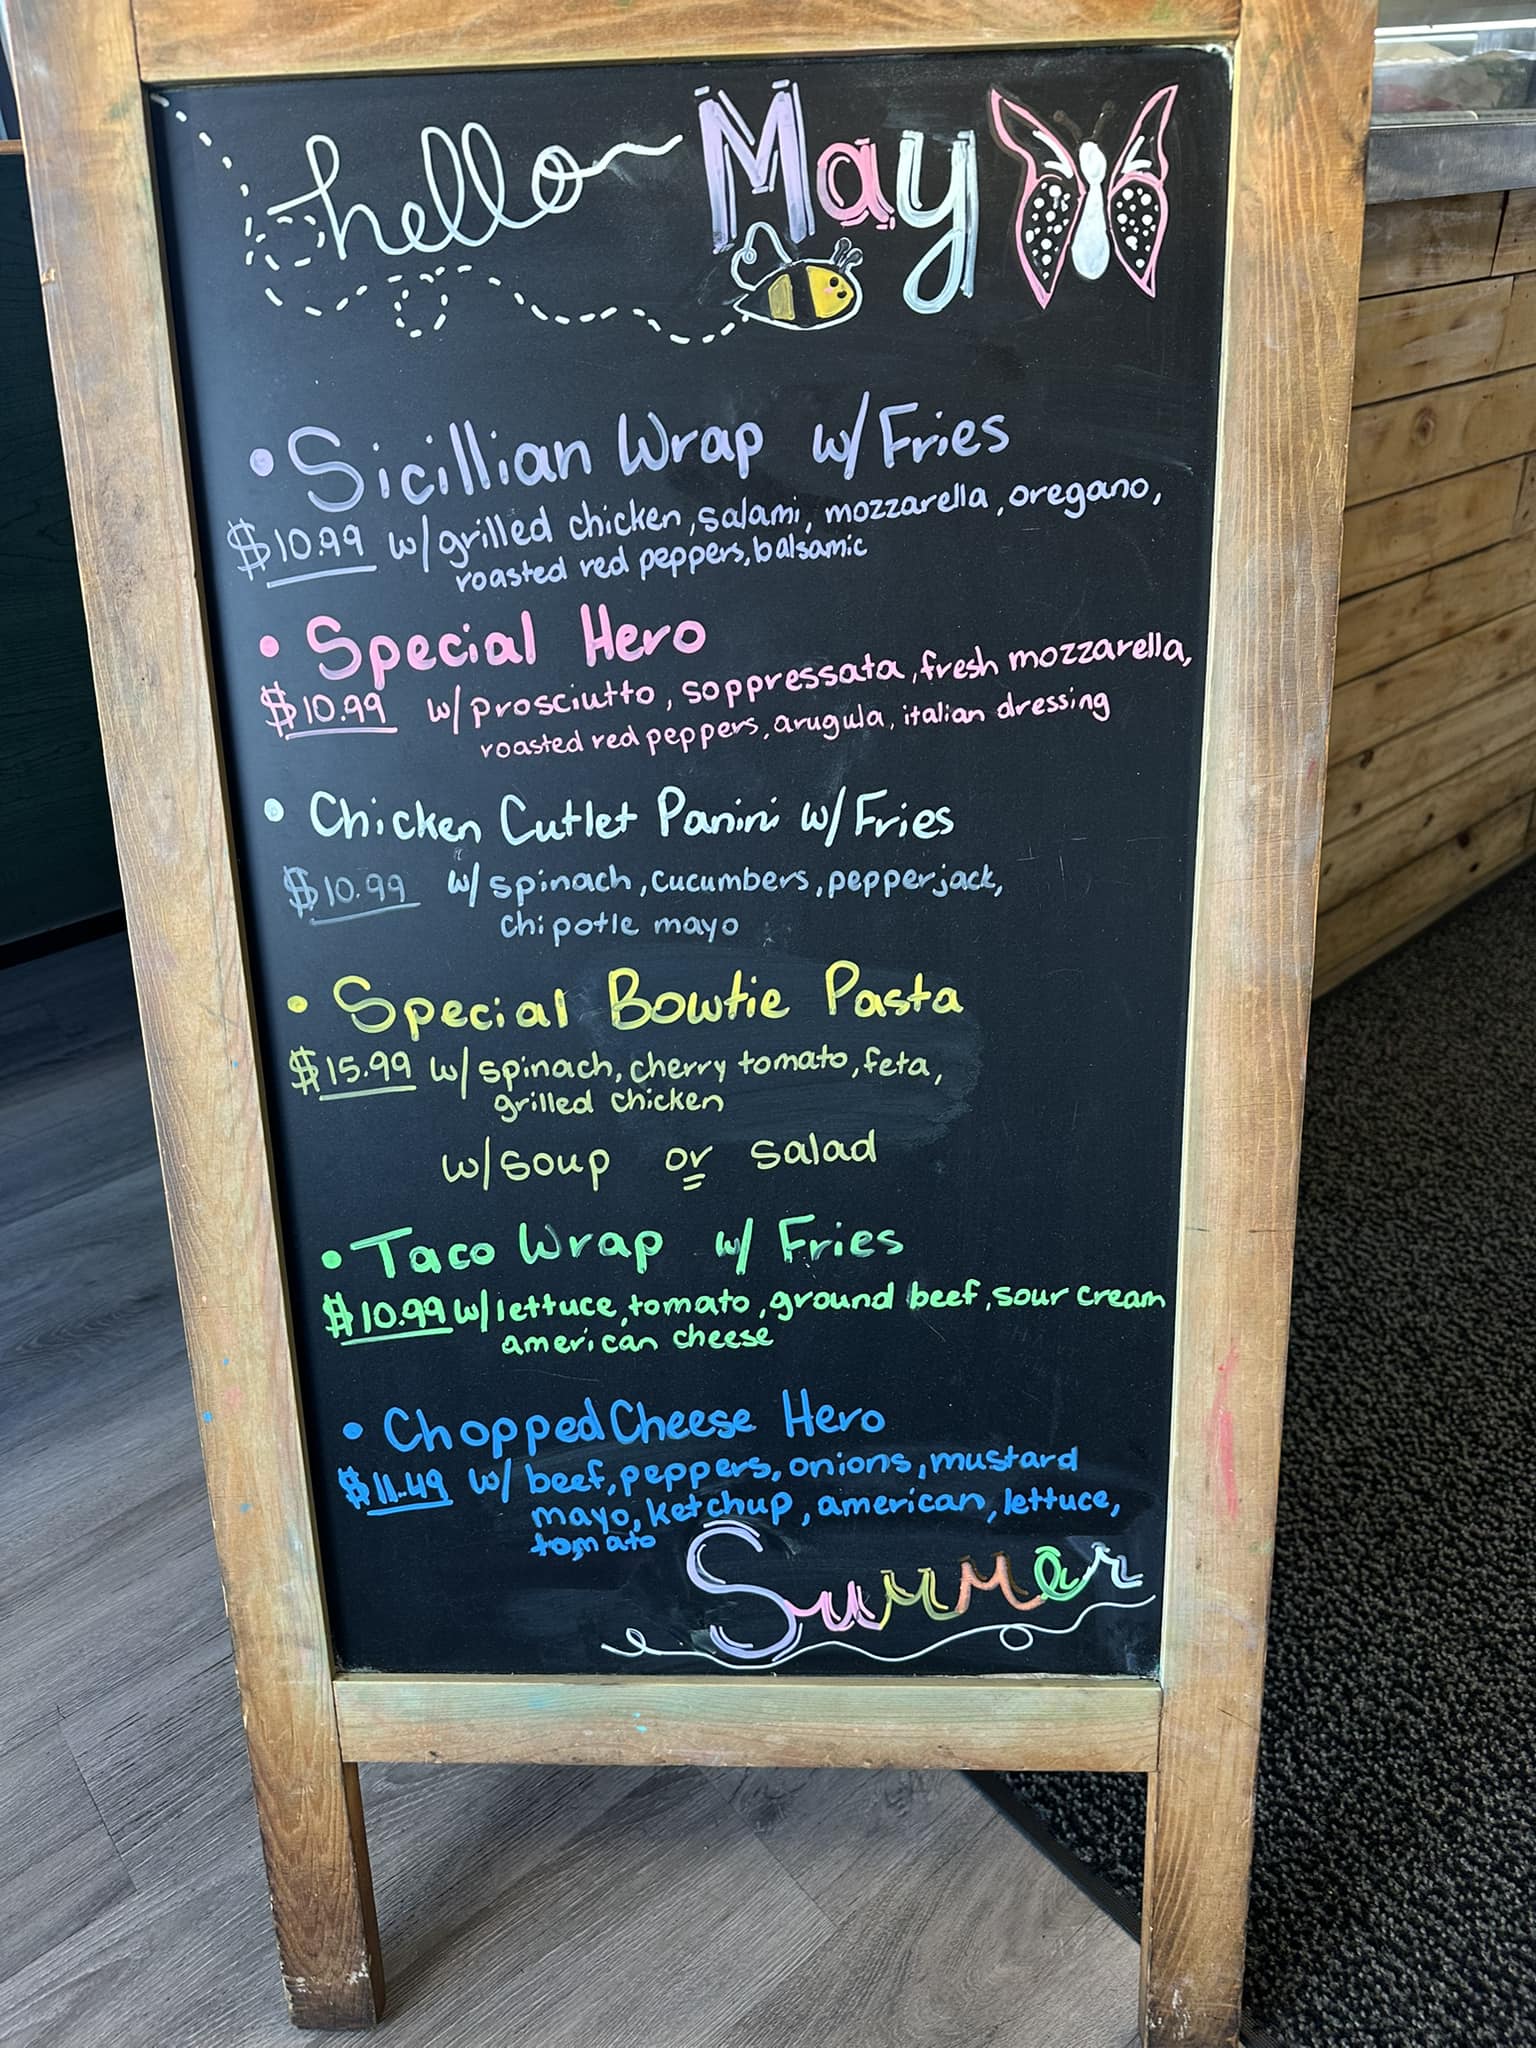 hello May
• Sicillian Wrap w/Fries
$10.99 w/grilled chicken, salami, mozzarella, oregano,
roasted red peppers, balsamic
• Special Hero
$10.99 w/prosciutto, soppressata, fresh mozzarella,
roasted red peppers, arugula, italian dressing
• Chicken Cutlet Panini w/Fries
$10.99 w/spinach, cucumbers, pepperjack,
chipotle mayo
• Special Bowtie Pasta
$15.99 w/spinach, cherry tomato, feta,
grilled chicken
w/soup or salad
• Taco Wrap w/ Fries
$10.99 w/lettuce, tomato, ground beef, sour cream
american cheese
• Chopped Cheese Hero
$11.49 w/ beef, peppers, onions, mustard
mayo, ketchup, american, lettuce,
tomato
Summer